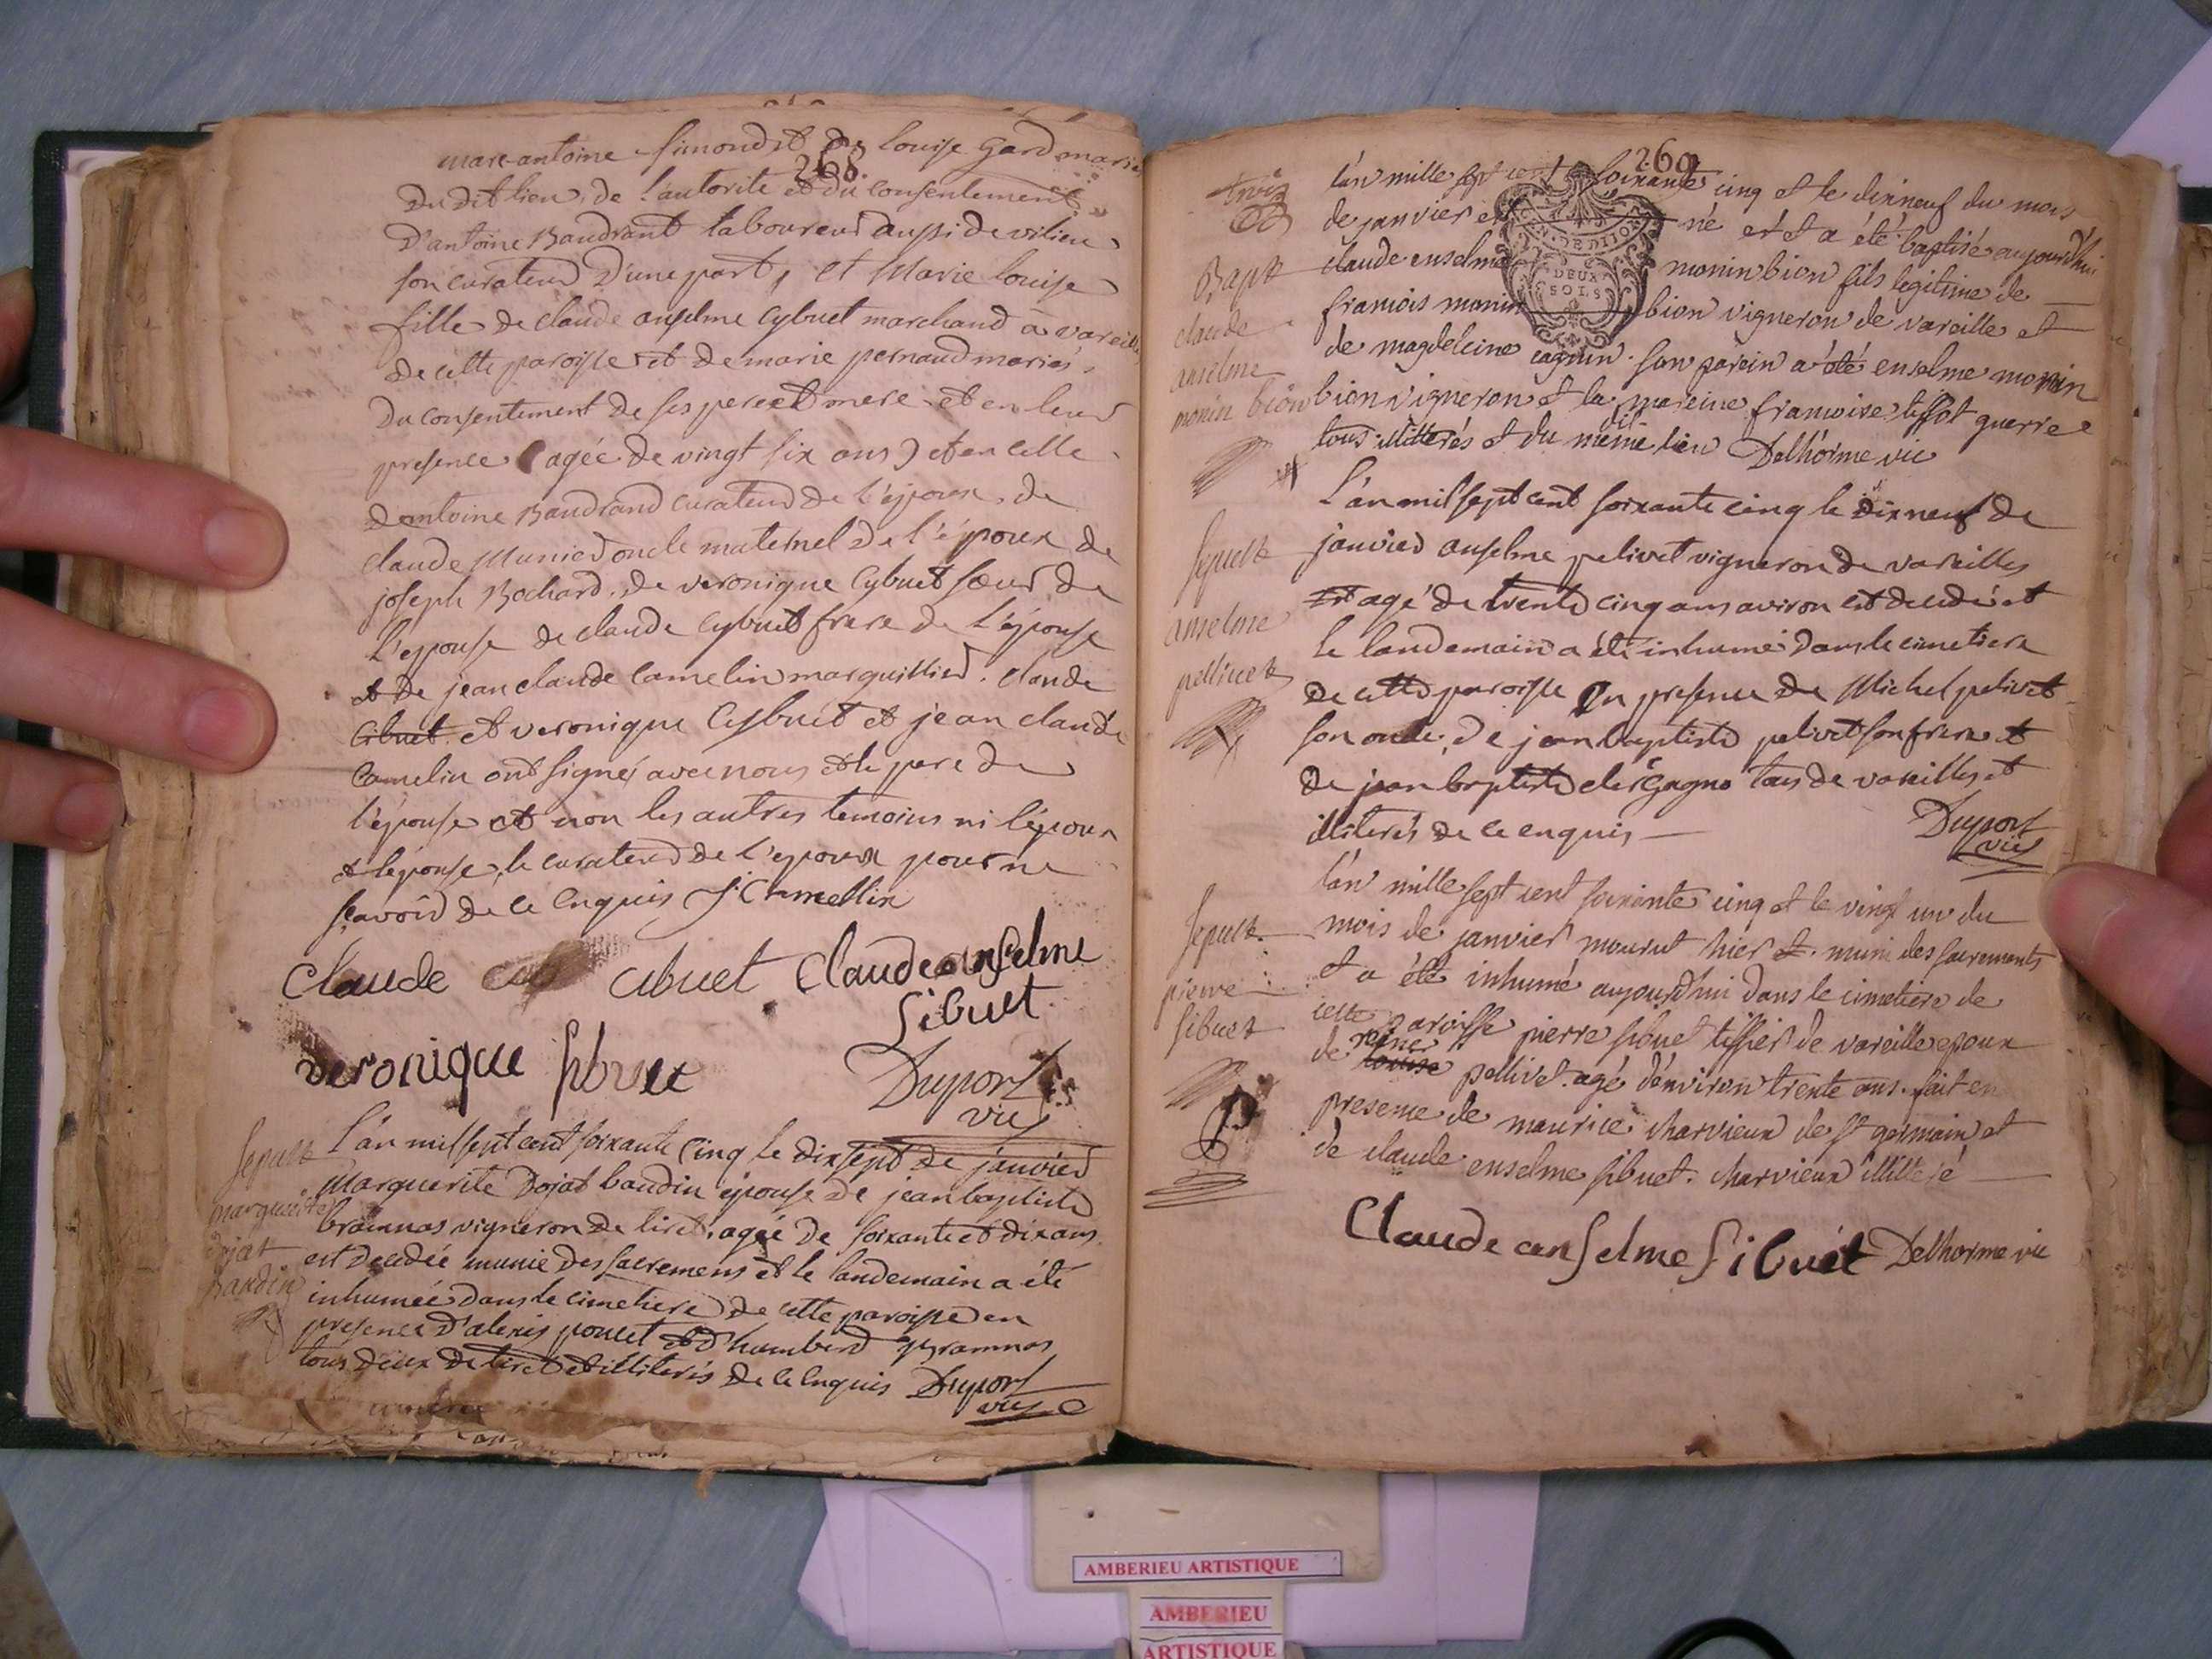 marc antoine simond et de louise gard mariés
268.
du dit lieu, de l'autorité et du consentement
d'antoine Baudrant laboureur aussi de vilieu
son curateur d'une part, et Marie louise
fille de claude anselme Cybuet marchand a vareille
de cette paroisse et de marie pernaud mariés,
du consentement de ses pere et mere et en leur
presence (agée de vingt six ans) et en celle
d'antoine Baudrand curateur de l'époux, de
claude Munier oncle maternel de l'époux de
joseph Bochard, de veronique Cybuet sœur de
l'epouse de claude Cybuet frere de l'épouse
et de jean claude Camelin marguillier. claude
Cibuet et veronique Cybuet et jean claude
Camelin ont signé avec nous et le pere de
l'épouse et non les autres temoins ni l'époux
et l'épouse, le curateur de l'epoux pour ne
sçavoir de ce enquis J. C. Camellin
Claude cibuet Claude anselme
Sibuet
veronique sibuet
Duport
vic
Sepult
marguerite
dojat
baudin
L'an mil sept cent soixante Cinq le dix sept de janvier
Marguerite Dojat baudin épouse de jean baptiste
brannas vigneron de tiret, agée de soixante et dix ans
est decedée munie des sacremens et le landemain a été
inhumée dans le cimetiere de cette paroisse en
presence d'alexis poncet et d'humberd brannas
tous deux de tiret et illiterés de ce enquis Duport
vic
269
trois
Bapt
claude
anselme
monin bion
l'an mille sept cent soixante cinq et le dixneuf du mois
de janvier est né et a été baptisé aujourdhui
claude enselme monin bion fils legitime de
francois monin bion vigneron de vareille et
de magdeleine cagnin. son parein a été enselme monin
bion vigneron et la mareine francoise tissot guerre
tous illitterés et du dit même lieu Delhorme vic
DEUX
SOLS
Sepult
anselme
pellivet
L'an mil sept cent soixante cinq le dix neuf de
janvier anselme pelivet vigneron de vareilles
agé de trente cinq ans aviron est decedé et
le landemain a été inhumé dans le cimetiere
de cette paroisse En presence de Michel pelivet
son oncle, de jean baptiste pelivet son frere et
de jean baptiste clergagne tous de vareilles et
illiterés de ce enquis
Duport
vic
Sepult.
pierre
sibuet
l'an mille sept cent soixante cinq et le vingt un du
mois de janvier mourut hier et. muni des sacrements
et a été inhumé aujourdhui dans le cimetiere de
cette paroisse pierre sibuet tissier de vareille epoux
de reine louise pellivet. agé d'environ trente ans. fait en
presence de maurice charvieux de st germain et
de claude enselme sibuet. charvieux illiteré
Claude anselme Sibuet Delhorme vic
AMBERIEU ARTISTIQUE
AMBERIEU
ARTISTIQUE